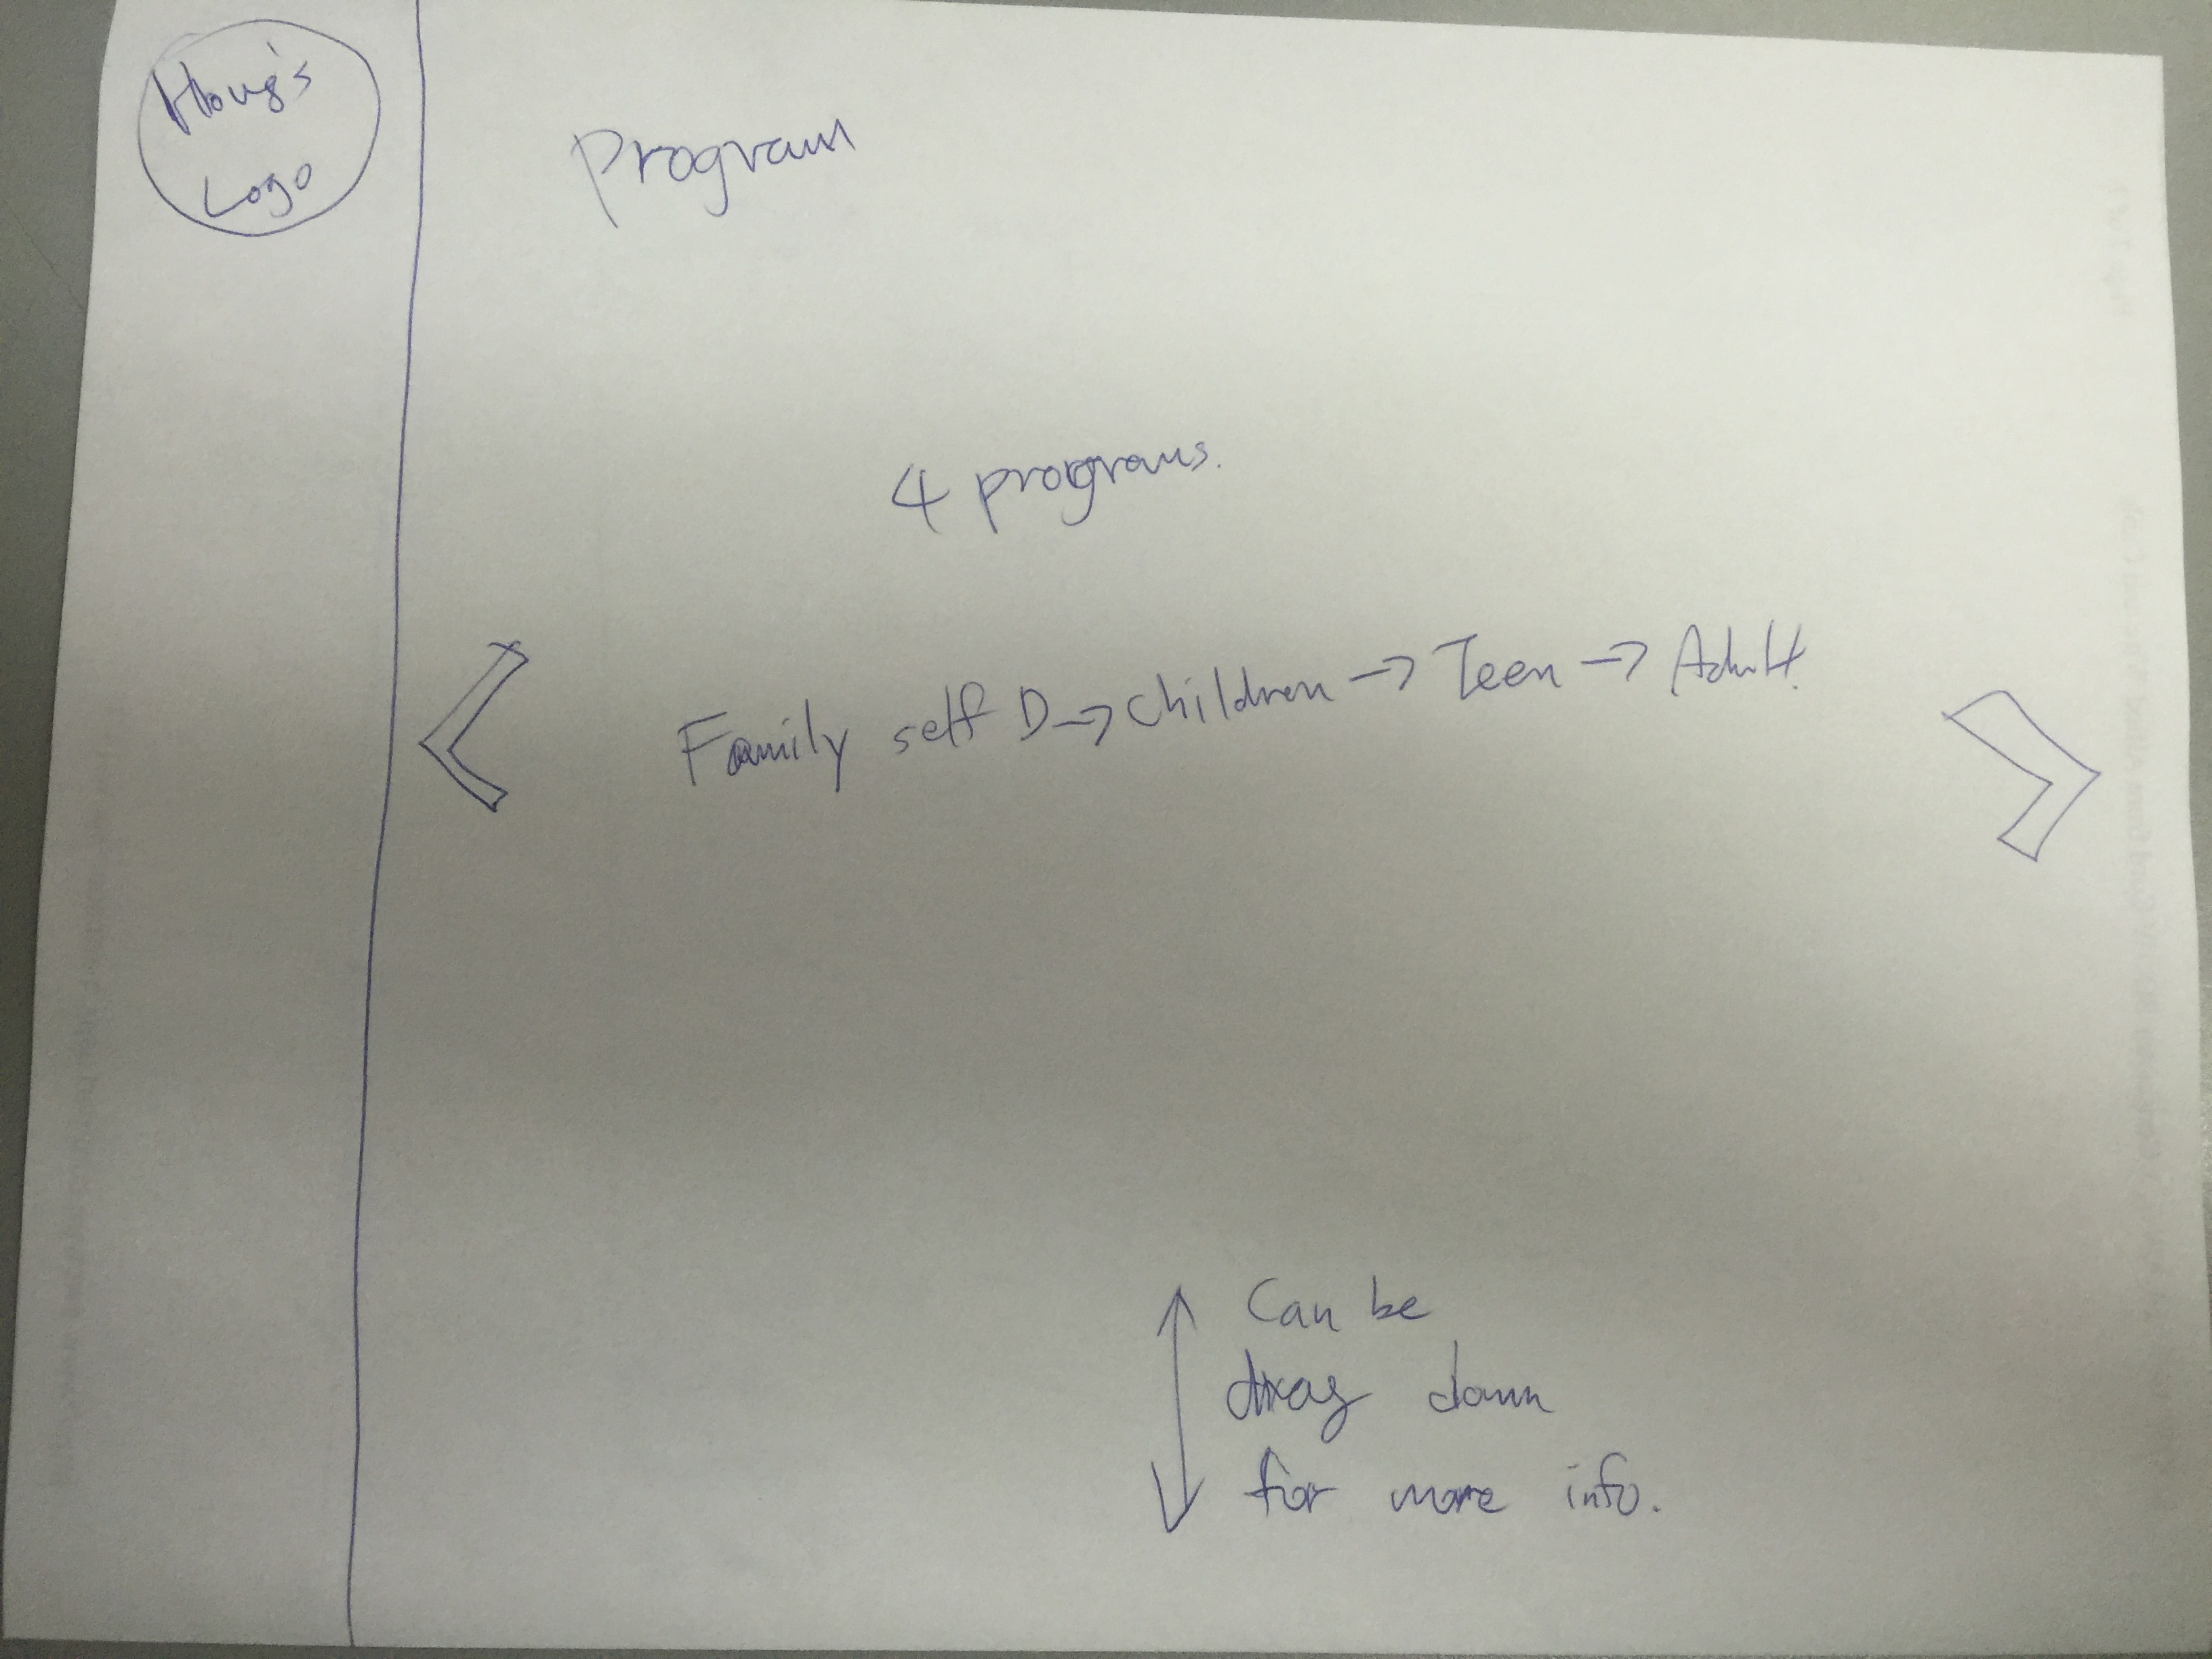 Houg's
Logo
Program
4 programs.
Family self D → Children → Teen → Adult
Can be
drag down
for more info.